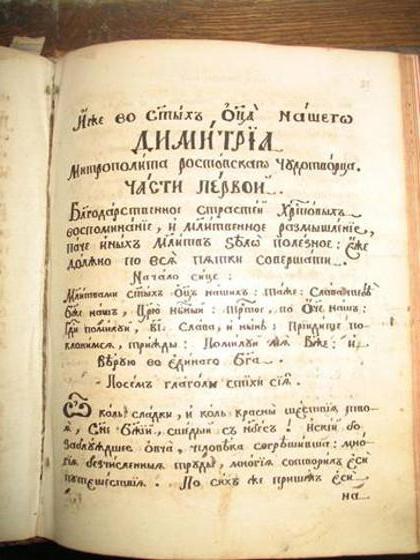 И҆́же во ст҃ы́хъ Ѻ҆ц҃а̀ на́шегѡ
ДИМИ́ТРЇА
Митрополи́та росто́вскагѡ Чꙋдотво́рца.
ЧАСТИ ПЕ́РВОЙ.
Благода́рственное страсте́й Хрⷭ҇то́выхъ
воспомина́нїе, и мл҃и́твенное размышле́нїе,
па́че и́ныхъ мл҃и́твъ ѕѣлѡ̀ поле́зное: є҆́же
до́лжно по всѧ̑ пѧткѝ соверша́ти.
Нача́ло си́це:
Мл҃и́твами ст҃ы́хъ Ѻ҆ц҃ъ на́шихъ: та́же: Сла́ва тебѣ̀
бж҃е на́шъ, Цр҃ю̀ нбⷭ҇ный: трⷭ҇то́е, по Ѻ҆́ч҃е на́шъ:
Гдⷭ҇и поми́лꙋй, в҃і. Сла́ва, и ны́нѣ: Прїиди́те по-
клони́мсѧ, три́жды: Поми́лꙋй мѧ̀ Бж҃е: и
Вѣ́рꙋю во є҆ди́наго Бг҃а.
Посе́мъ глаго́лы стїхѝ сїѧ̑.
Ѽ ко́ль сла́дки, и ко́ль кра́сны ше́ствїѧ тво-
ѧ̑, Сн҃е Бж҃їй, сше́дый съ нб҃есѐ! И҆скі́й бо
заблꙋ́ждшее ѻ҆вча̀, человѣ́ка согрѣши́вша: мнѡ́-
гїѧ безчи́сленныѧ трꙋды̀, мнѡ́гїѧ сотвори́лъ є҆сѝ
пꙋтеше́ствїѧ. По си́хъ же прише́лъ є҆сѝ
на